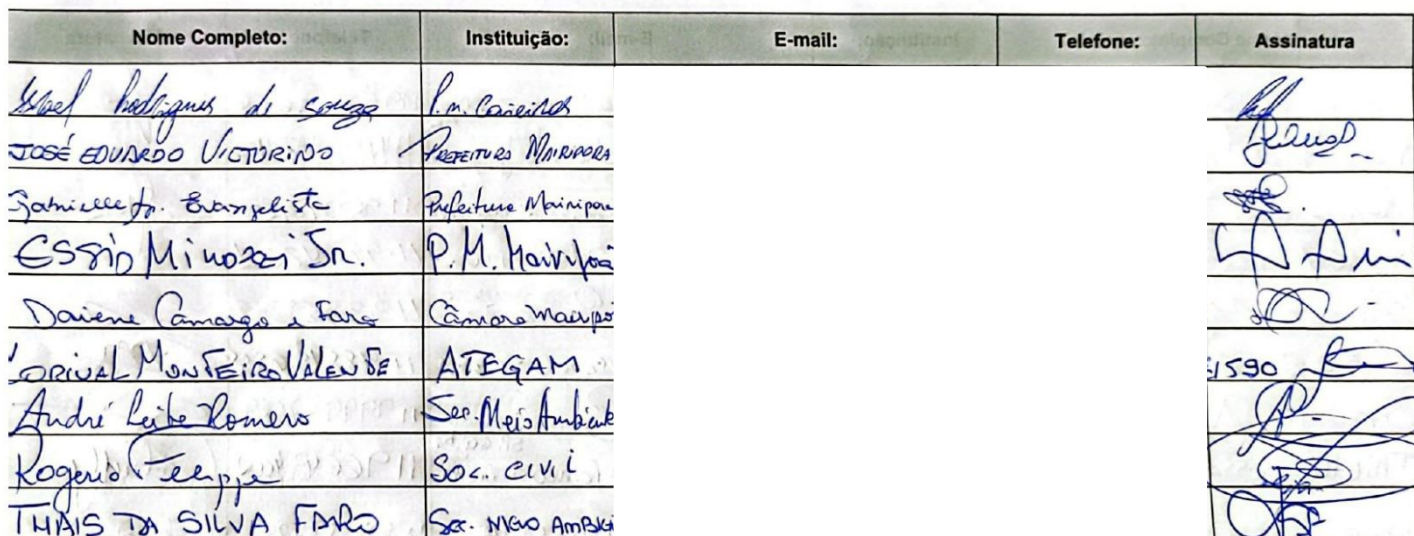 Nome Completo: Instituição: E-mail: Telefone: Assinatura
Rodrigues de Souza P.M. Caieiras
JOSÉ EDUARDO VICTORINO PREFEITURA MAIRIPORA
Evangelista Prefeitura Mairipora
ESSIO Minozzi Jr. P.M. Mairiporã
Daiene Camargo e Faro Câmara Mairipo
MONTEIRO VALENTE ATEGAM 1590
André Leite Romero Sec. Meio Ambiente
Rogerio Soc. Civil
THAIS DA SILVA FARO Sec. MEIO AMBIE